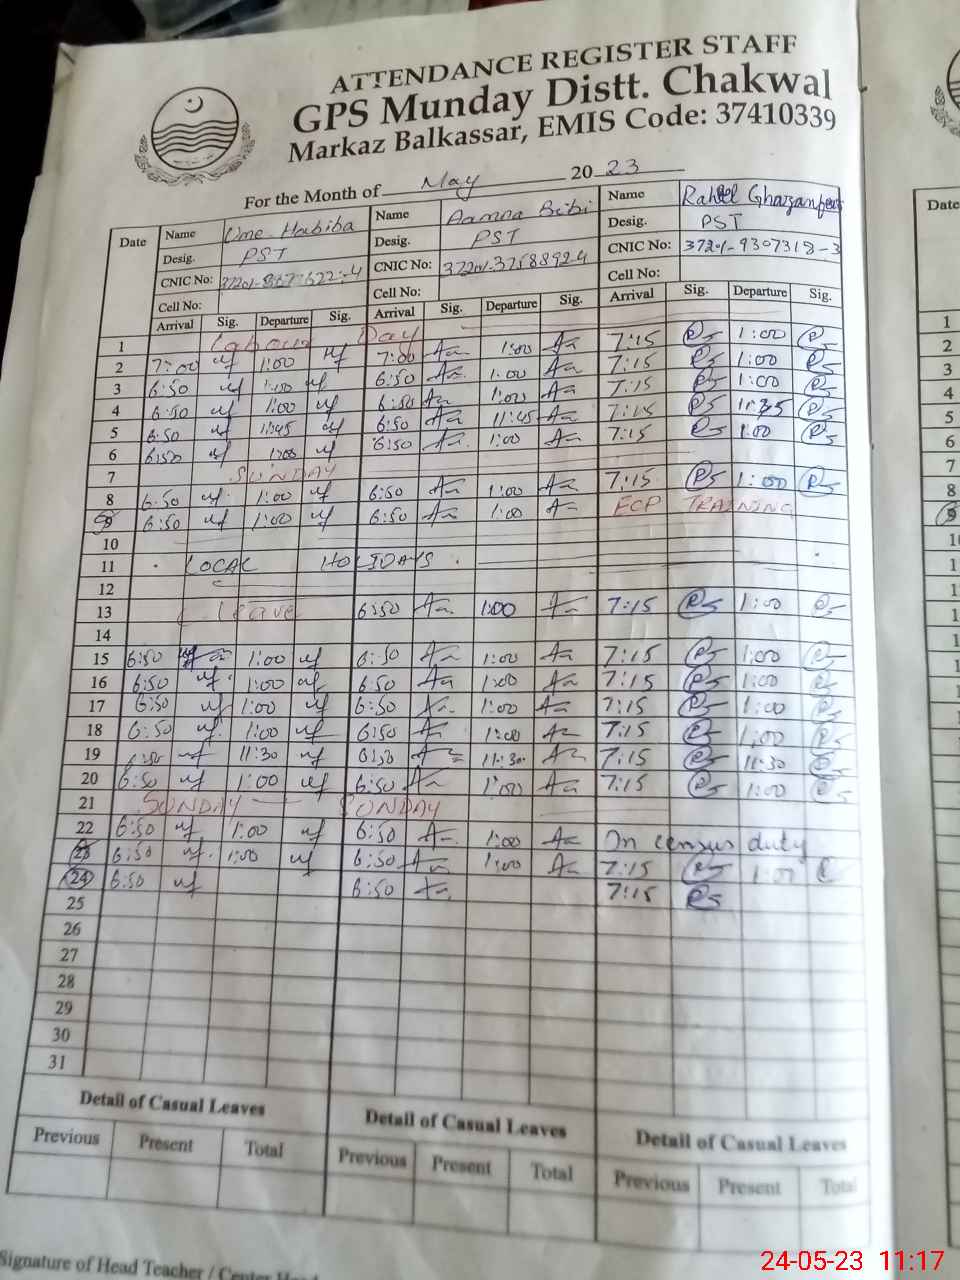 ATTENDANCE REGISTER STAFF
GPS Munday Distt. Chakwal
Markaz Balkassar, EMIS Code: 37410339
For the Month of May 2023
Date Name Ume Habiba Name Aamna Bibi Name Raheel Ghazanfer
Desig. PST Desig. PST Desig. PST
CNIC No: CNIC No: 37201-3758892-4 CNIC No: 37201-9307318-3
Cell No: Cell No: Cell No:
Arrival Sig. Departure Sig. Arrival Sig. Departure Sig. Arrival Sig. Departure Sig.
1 Labour Day
2 7:00 1:00 7:00 1:00 7:15 1:00
3 6:50 1:00 6:50 1:00 7:15 1:00
4 6:50 1:00 6:50 1:00 7:15 1:00
5 6:50 11:45 6:50 11:45 7:15
6 6:50 1:00 6:50 1:00 7:15 1:00
7 SUNDAY
8 6:50 1:00 6:50 1:00 7:15 1:00
9 6:50 1:00 6:50 1:00 ECP TRAINING
10
11 LOCAL HOLIDAYS
12
13 Leave 6:50 1:00 7:15 1:00
14
15 6:50 1:00 6:50 1:00 7:15 1:00
16 6:50 1:00 6:50 1:00 7:15 1:00
17 6:50 1:00 6:50 1:00 7:15 1:00
18 6:50 1:00 6:50 1:00 7:15 1:00
19 6:50 11:30 11:30 7:15 11:30
20 6:50 1:00 6:50 1:00 7:15 1:00
21 SUNDAY SUNDAY
22 6:50 1:00 6:50 1:00 On census duty
23 6:50 1:00 6:50 1:00 7:15 1:00
24 6:50 6:50 7:15
25
26
27
28
29
30
31
Detail of Casual Leaves Detail of Casual Leaves Detail of Casual Leaves
Previous Present Total Previous Present Total Previous Present Total
Signature of Head Teacher / Center Head
Date
1
2
3
4
5
6
7
8
9
24-05-23 11:17